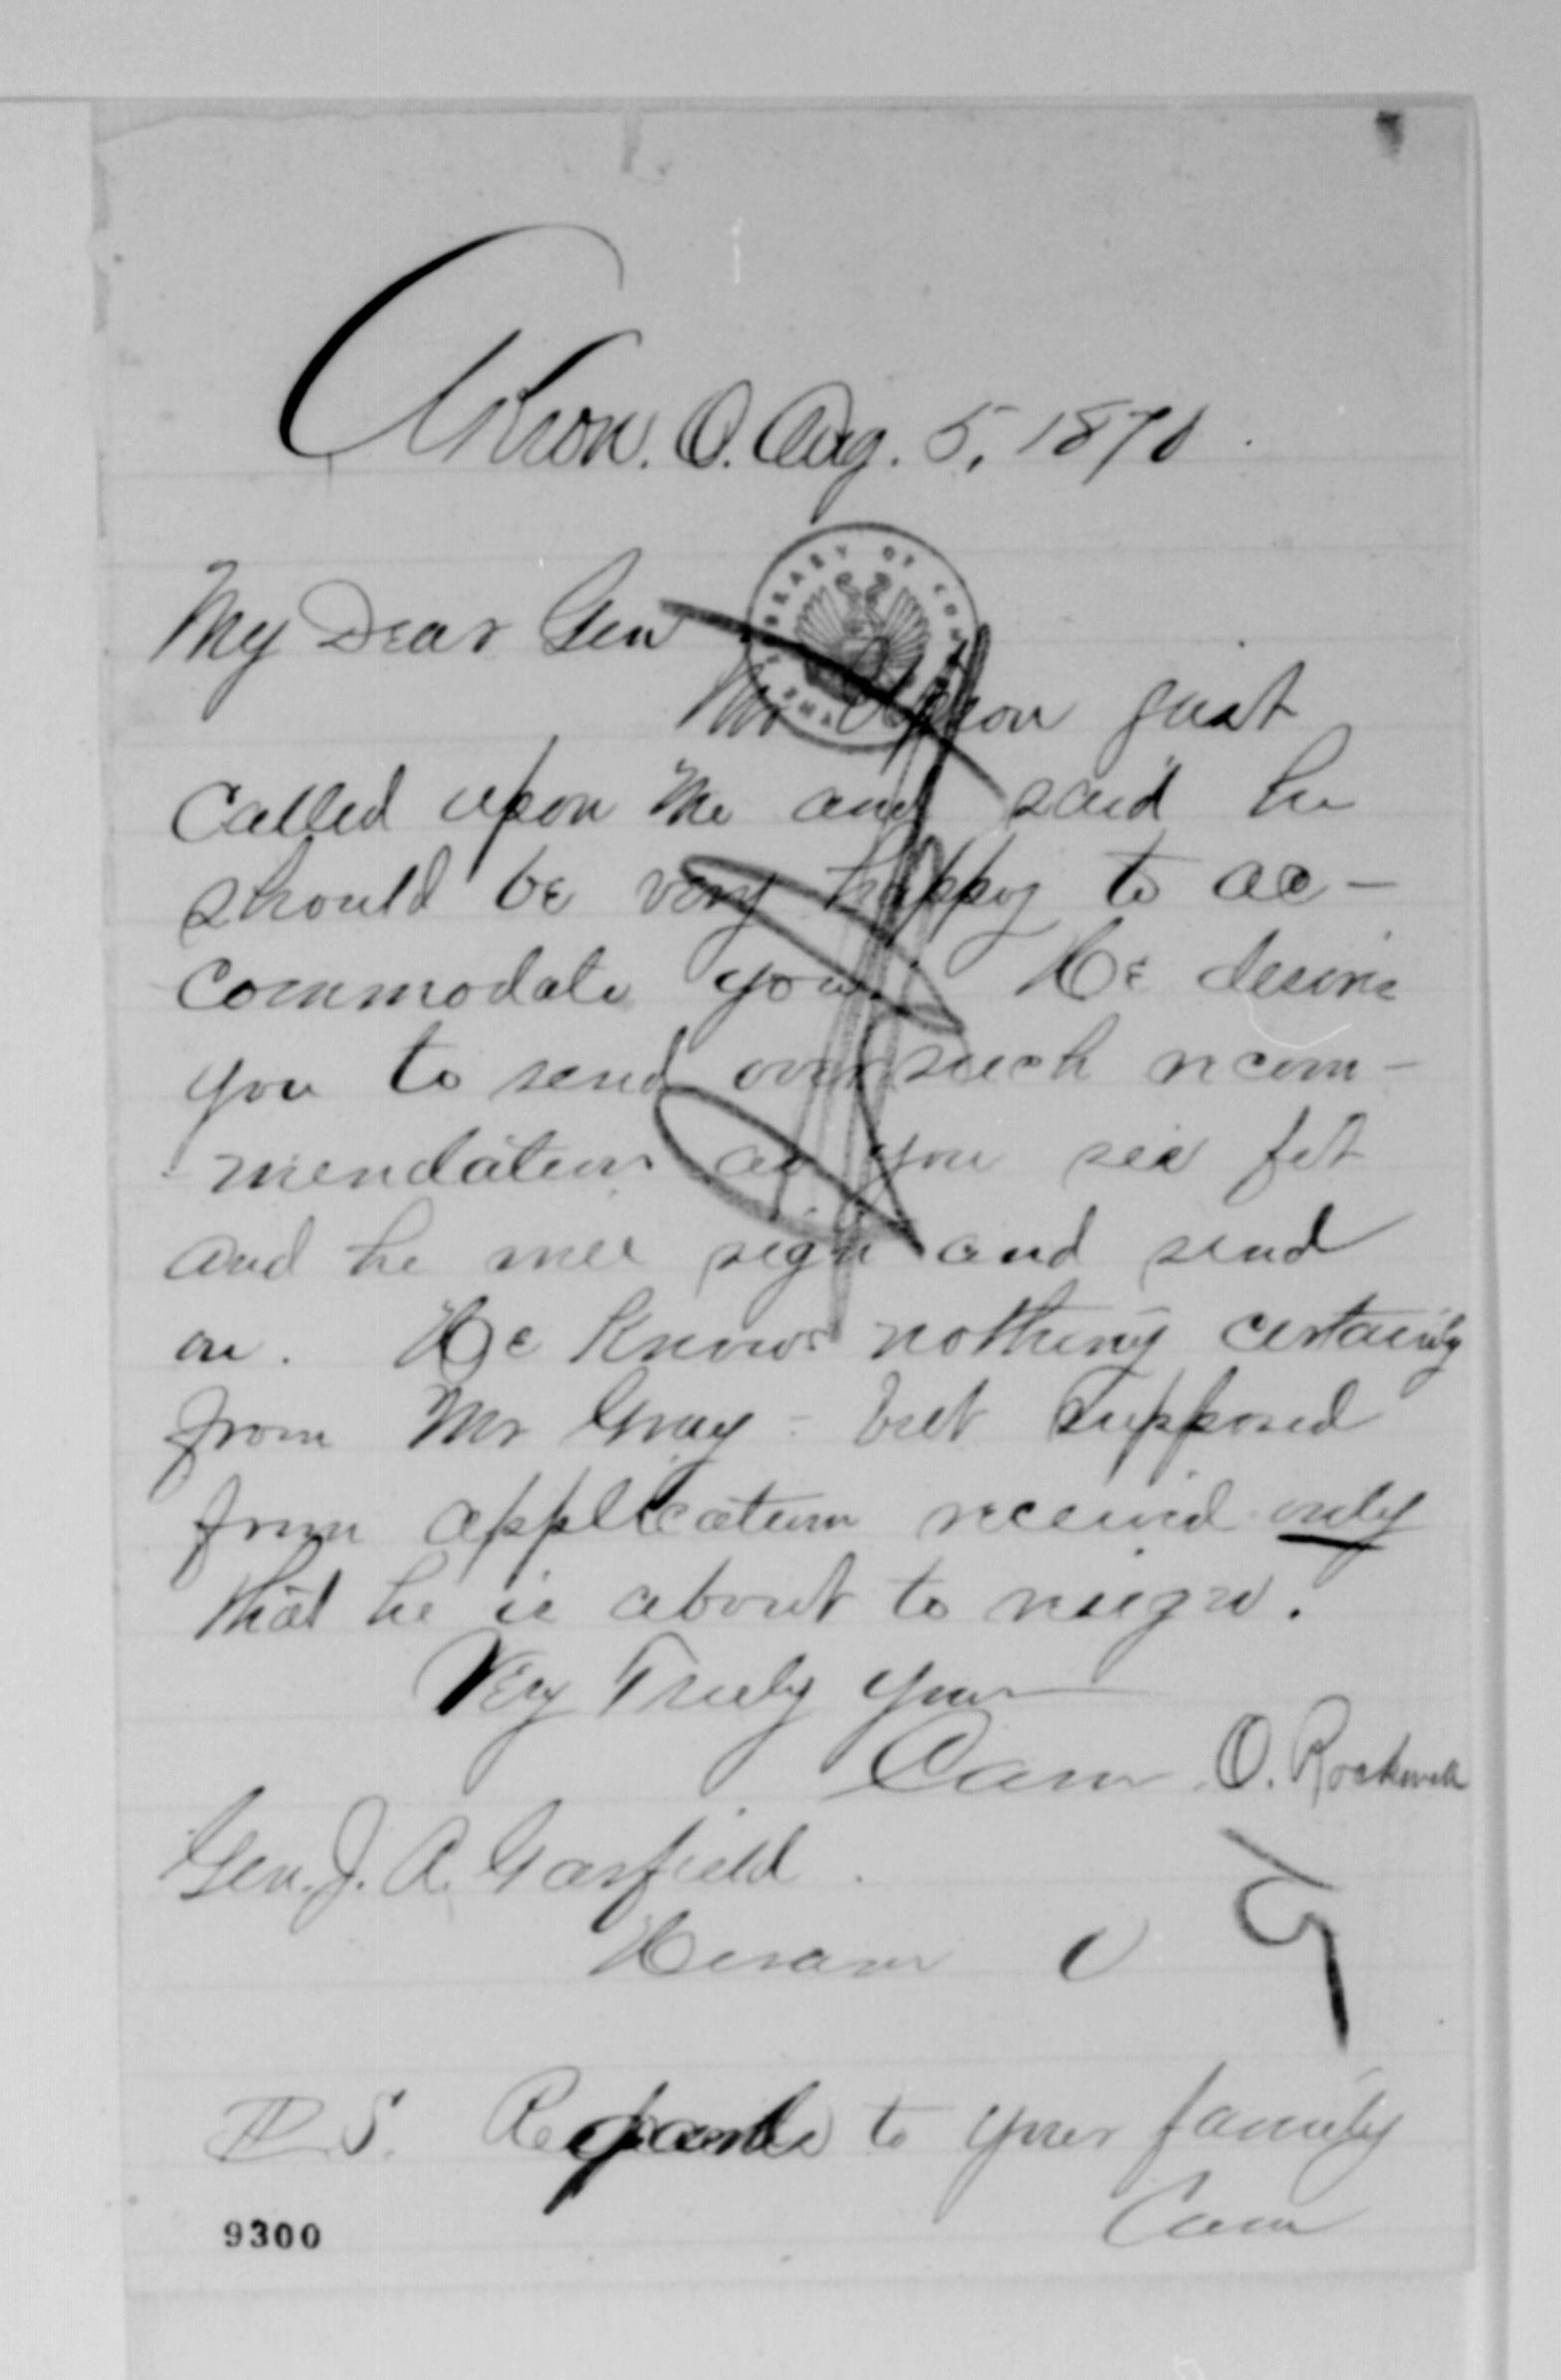 Akron. O. Aug. 5, 1870.
My Dear Gen
Mr Upson just
called upon me and said he
should be very happy to ac-
commodate you. He desires
you to send over such recom-
mendation as you see fit
and he will sign and send
on. He knows nothing certainly
from Mr Gray - but supposed
from application received only
that he is about to resign.
Very Truly Yours
Cam O. Rockwell
Gen. J. A. Garfield.
Hiram O
P.S. Regards to your family
Cam
9300